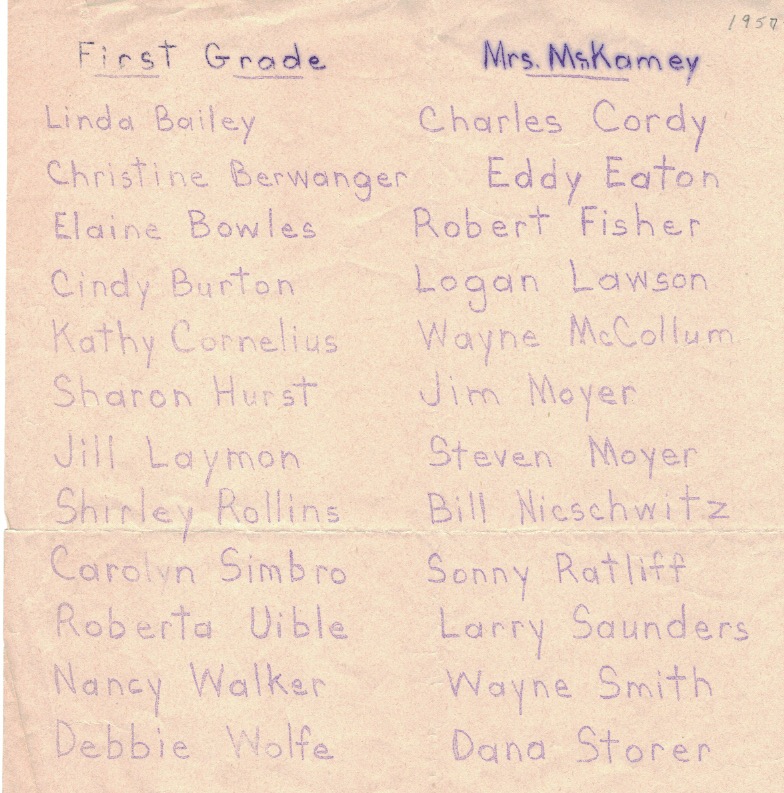 1957
First Grade Mrs. McKamey
Linda Bailey Charles Cordy
Christine Berwanger Eddy Eaton
Elaine Bowles Robert Fisher
Cindy Burton Logan Lawson
Kathy Cornelius Wayne McCollum
Sharon Hurst Jim Moyer
Jill Laymon Steven Moyer
Shirley Rollins Bill Nieschwitz
Carolyn Simbro Sonny Ratliff
Roberta Uible Larry Saunders
Nancy Walker Wayne Smith
Debbie Wolfe Dana Storer